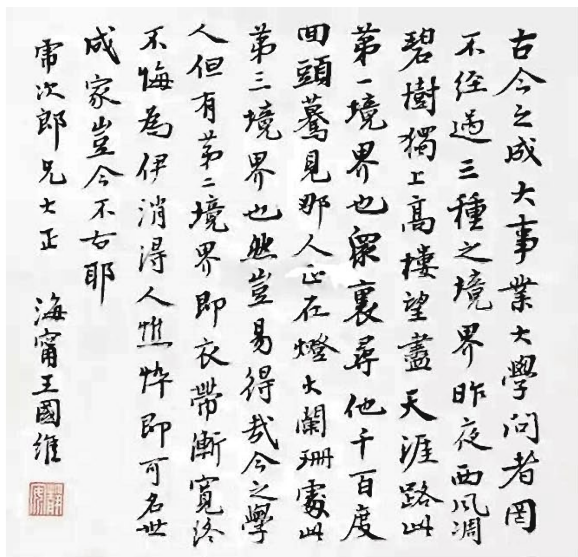 古今之成大事業大學問者罔
不經過三種之境界昨夜西風凋
碧樹獨上高樓望盡天涯路此
第一境界也眾裏尋他千百度
回頭驀見那人正在燈火闌珊處此
第三境界也然豈易得哉今之學
人但有第二境界即衣帶漸寬終
不悔為伊消得人憔悴即可名世
成家豈今不古耶
次郎兄大正 海甯王國維